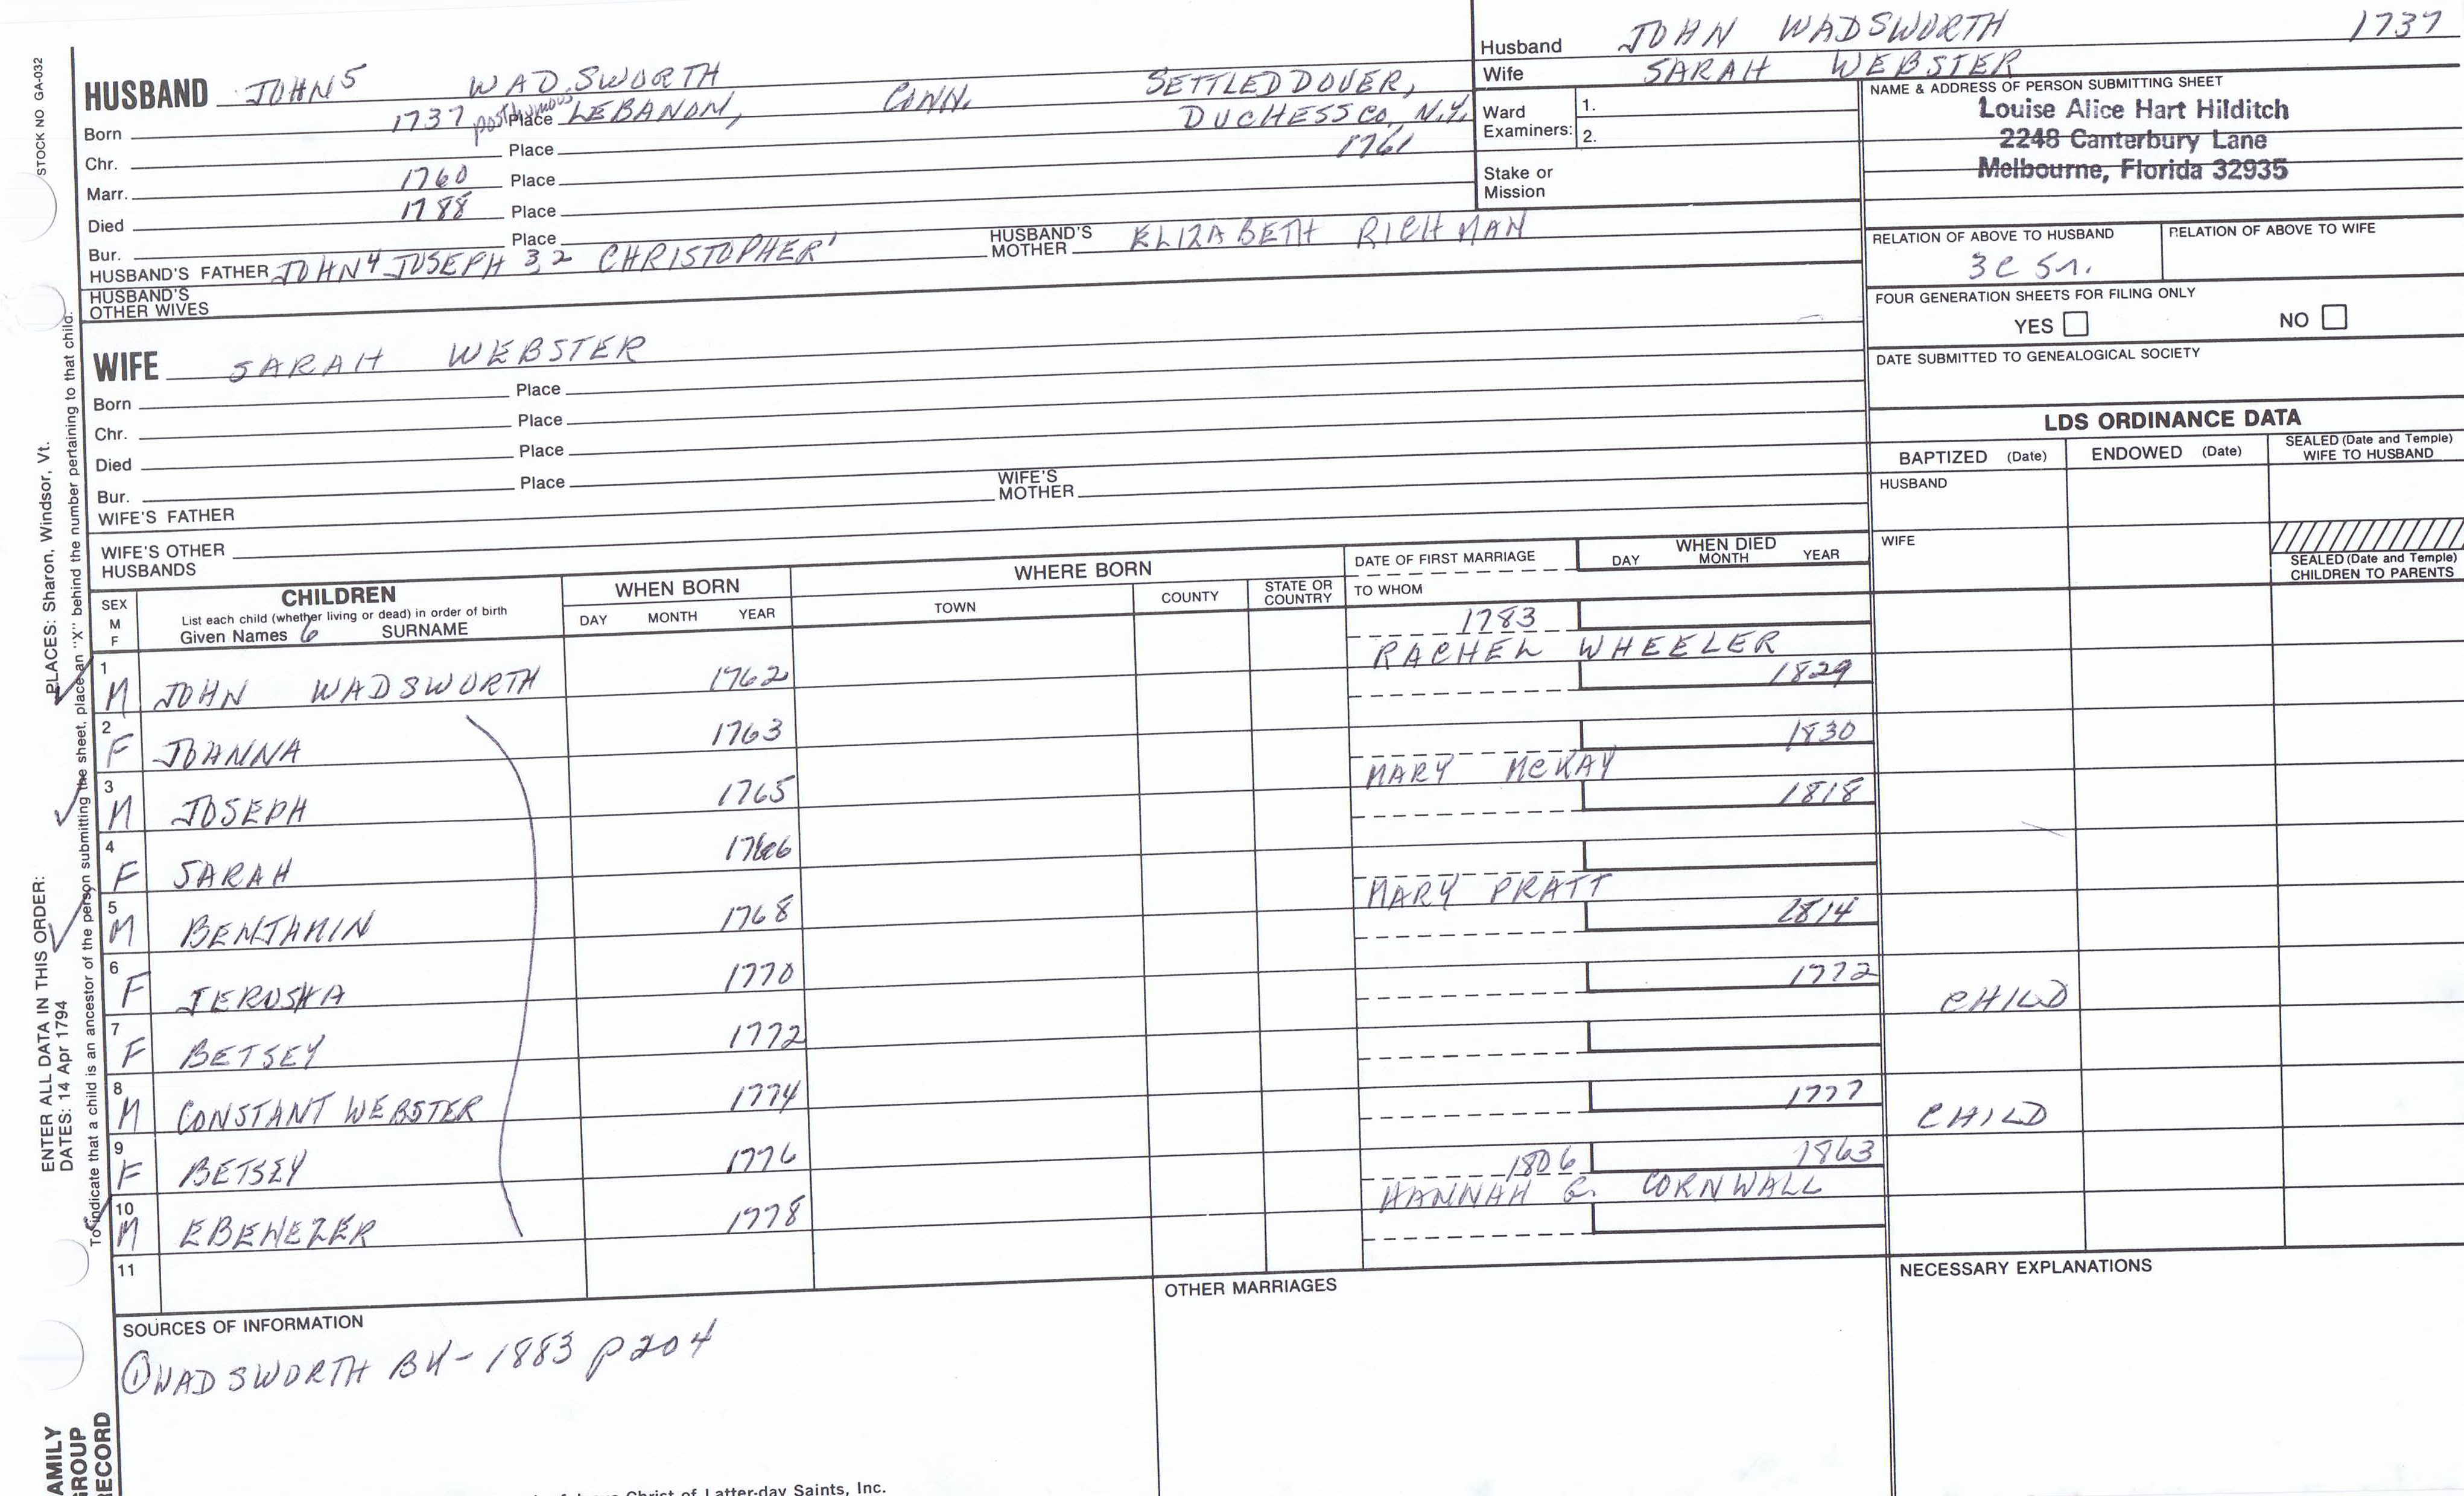 Husband JOHN WADSWORTH 1737
Wife SARAH WEBSTER
STOCK NO. GA-032
HUSBAND JOHN5 WADSWORTH SETTLED DOVER,
Born 1737 posthumous Place LEBANON, CONN. DUCHESS CO, N.Y.
Chr. Place 1761
Marr. 1760 Place
Died 1788 Place
Bur. Place
HUSBAND'S FATHER JOHN4 JOSEPH 3,2 CHRISTOPHER' HUSBAND'S MOTHER ELIZABETH RICHMAN
HUSBAND'S OTHER WIVES
Ward Examiners: 1.
2.
Stake or Mission
NAME & ADDRESS OF PERSON SUBMITTING SHEET
Louise Alice Hart Hilditch
2248 Canterbury Lane
Melbourne, Florida 32935
RELATION OF ABOVE TO HUSBAND RELATION OF ABOVE TO WIFE
3C 5r.
FOUR GENERATION SHEETS FOR FILING ONLY
YES NO
DATE SUBMITTED TO GENEALOGICAL SOCIETY
WIFE SARAH WEBSTER
Born Place
Chr. Place
Died Place
Bur. Place
WIFE'S FATHER WIFE'S MOTHER
WIFE'S OTHER HUSBANDS
LDS ORDINANCE DATA
BAPTIZED (Date) ENDOWED (Date) SEALED (Date and Temple) WIFE TO HUSBAND
HUSBAND
WIFE
SEALED (Date and Temple) CHILDREN TO PARENTS
SEX M F
CHILDREN
List each child (whether living or dead) in order of birth
Given Names 6 SURNAME
WHEN BORN
DAY MONTH YEAR
WHERE BORN
TOWN COUNTY STATE OR COUNTRY
DATE OF FIRST MARRIAGE
TO WHOM
WHEN DIED
DAY MONTH YEAR
1 M JOHN WADSWORTH 1762 1783 RACHEL WHEELER
2 F JOHANNA 1763 1829
3 M JOSEPH 1765 MARY McKAY 1830
4 F SARAH 1766 1818
5 M BENJAMIN 1768 MARY PRATT
6 F JERUSHA 1770 1814
7 F BETSEY 1772 1772 CHILD
8 M CONSTANT WEBSTER 1774
9 F BETSEY 1776 1777 CHILD
10 M EBENEZER 1778 1806 HANNAH G. CORNWALL 1863
11
SOURCES OF INFORMATION
① WADSWORTH BK - 1883 p204
OTHER MARRIAGES
NECESSARY EXPLANATIONS
ENTER ALL DATA IN THIS ORDER:
DATES: 14 Apr 1794 PLACES: Sharon, Windsor, Vt.
To indicate that a child is an ancestor of the person submitting the sheet, place an "X" behind the number pertaining to that child.
AMILY
GROUP
RECORD
Christ of Latter-day Saints, Inc.